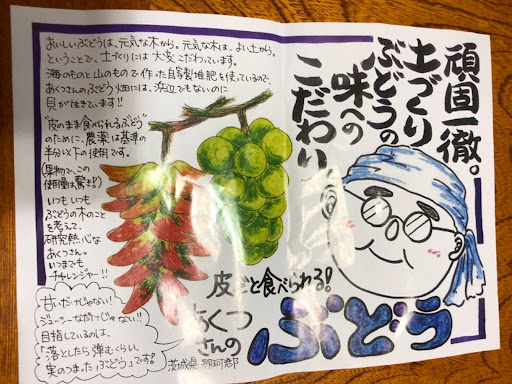 頑固一徹。
土づくり
ぶどうの
味への
こだわり
おいしいぶどうは、元気な木から。元気な木は、よい土から。
ということで、土づくりには大変こだわっています。
海のものと山のもので作った自家製堆肥を使っているので、
あくつさんのぶどう畑には、浜辺でもないのに
貝が落きています!!
"皮のまま食べられるぶどう"
のために、農薬は基準の
半分以下の使用です。
(果物で、この
使用量は驚き!)
いつもいつも
ぶどうの木のこと
を考えて、
研究熱心な
あくつさん。
いつまでも
チャレンジャー!!
甘いだけじゃない!
ジューシーなだけじゃない!!
目指しているのは、
「落としたら弾むくらい、
実のつまったぶどう」です!
皮ごと食べられる!
あくつ
さんの
ぶどう
茨城県 那珂郡